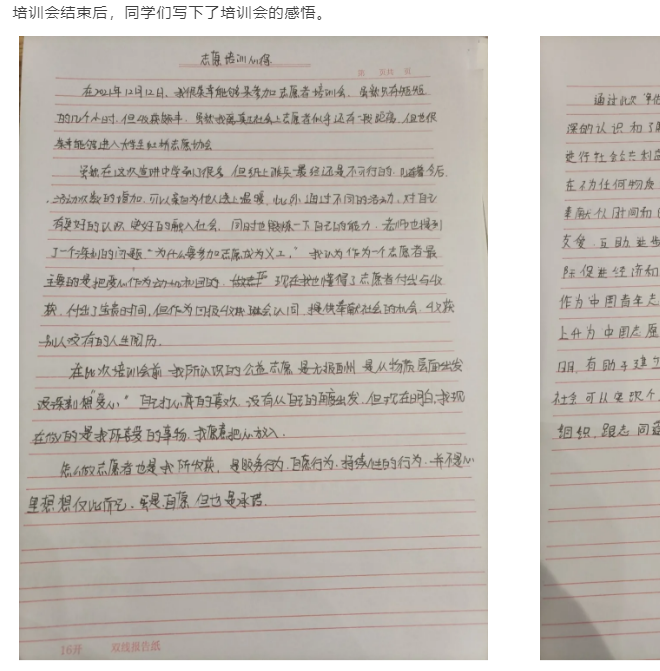 培训会结束后，同学们写下了培训会的感悟。
志愿培训心得
在2021年12月12日，我很荣幸能够来参加志愿者培训会，虽然只有短短
的几个小时，但收获颇丰。虽然我离真正社会上志愿者似乎还有一段距离，但也很
荣幸能够进入大学生红桥志愿协会
虽然在这次培训中学到了很多，但纸上谈兵最终还是不可行的，随着今后
活动次数的增加，可以更加为他人送上温暖，此外，通过不同的活动，对自己
有更好的认识，更好的融入社会，同时也锻炼一下自己的能力，老师也提到
了一个深刻的问题"为什么要参加志愿成为义工，"我认为作为一个志愿者最
主要的是把爱心作为动机和目的，现在我也懂得了志愿者付出与收
获，付出了宝贵时间，但作为回报收获社会认同，提供奉献社会的机会，收获
别人没有的人生阅历。
在此次培训会前，我所认识的公益志愿是无报酬，是从物质层面出发
没深刻想"爱心"自己打心底的喜欢，没有从自己的角度出发，但现在明白，我现
在做的是我所喜爱的事物，我愿意把心放入。
怎么做志愿者也是我所收获，是服务行为，自愿行为，持续性的行为，并不是心
里想想仅此而已，虽是自愿，但也是承诺。
16开 双线报告纸
通过此次
深的认识和了
进行社会公共利益
在不为任何物质
奉献个人时间和
友爱、互助、进步
际促进经济和
作为中国青年志
上升为中国志愿
明，有助于建立
社会可以实现个人
组织，跟志同道